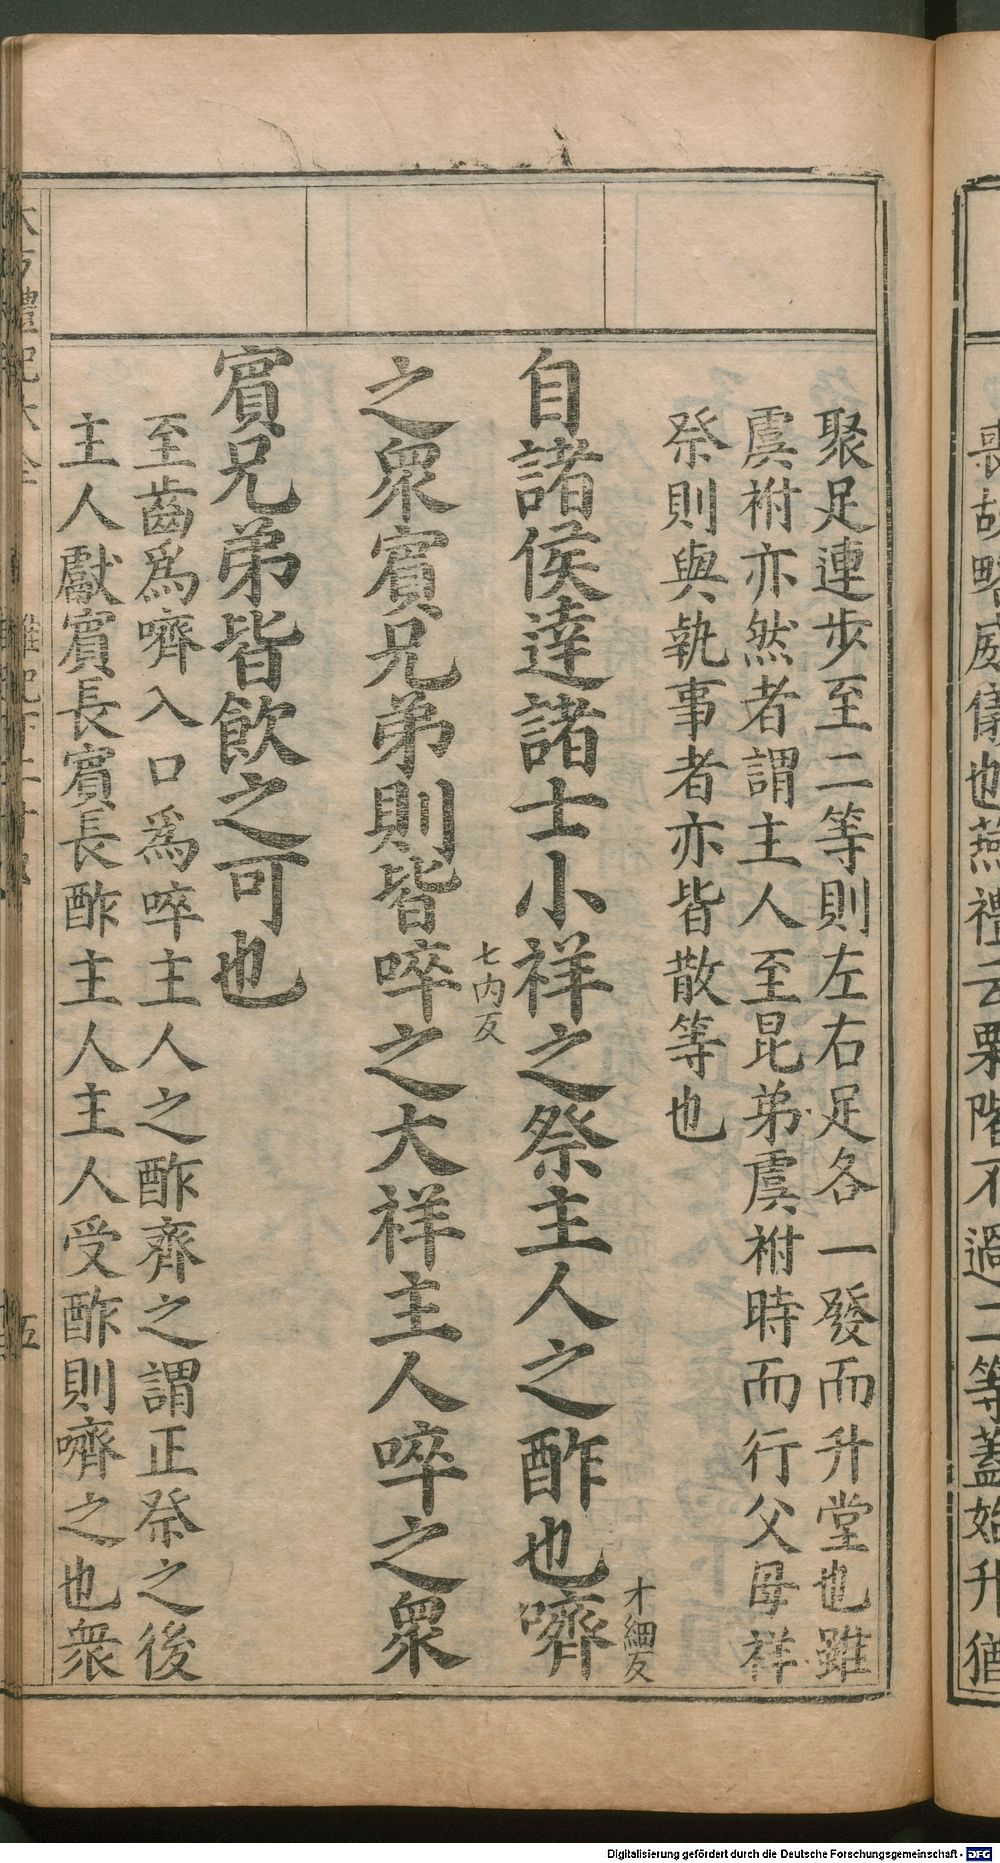 喪故略威儀也燕禮云栗階不過二等蓋始升猶
聚足連步至二等則左右足各一發而升堂也雖
虞祔亦然者謂主人至昆弟虞祔時而行父母祥
祭則與執事者亦皆散等也
自諸侯達諸士小祥之祭主人之酢也嚌
才細反
之衆賓兄弟則皆啐之大祥主人啐之衆
七內反
賓兄弟皆飲之可也
至齒爲嚌入口爲啐主人之酢齊之謂正祭之後
主人獻賓長賓長酢主人主人受酢則嚌之也衆
禮記大全
雜記下
五
Digitalisierung gefördert durch die Deutsche Forschungsgemeinschaft - DFG